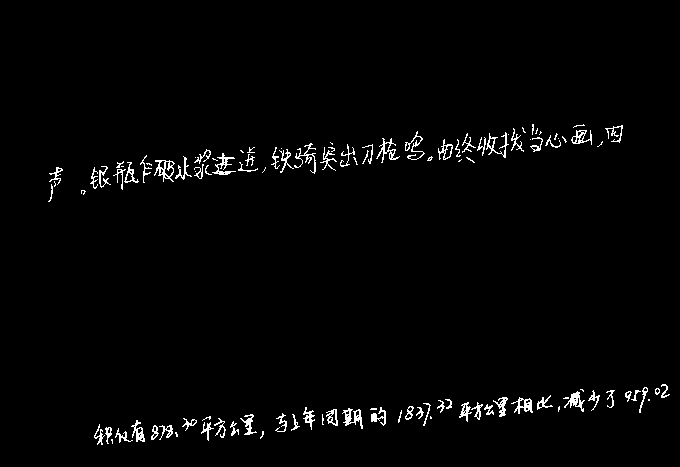 声。银瓶乍破水浆迸,铁骑突出刀枪鸣。曲终收拨当心画,四
积仅有878.30平方公里,与上年同期的1837.32平方公里相比,减少了959.02